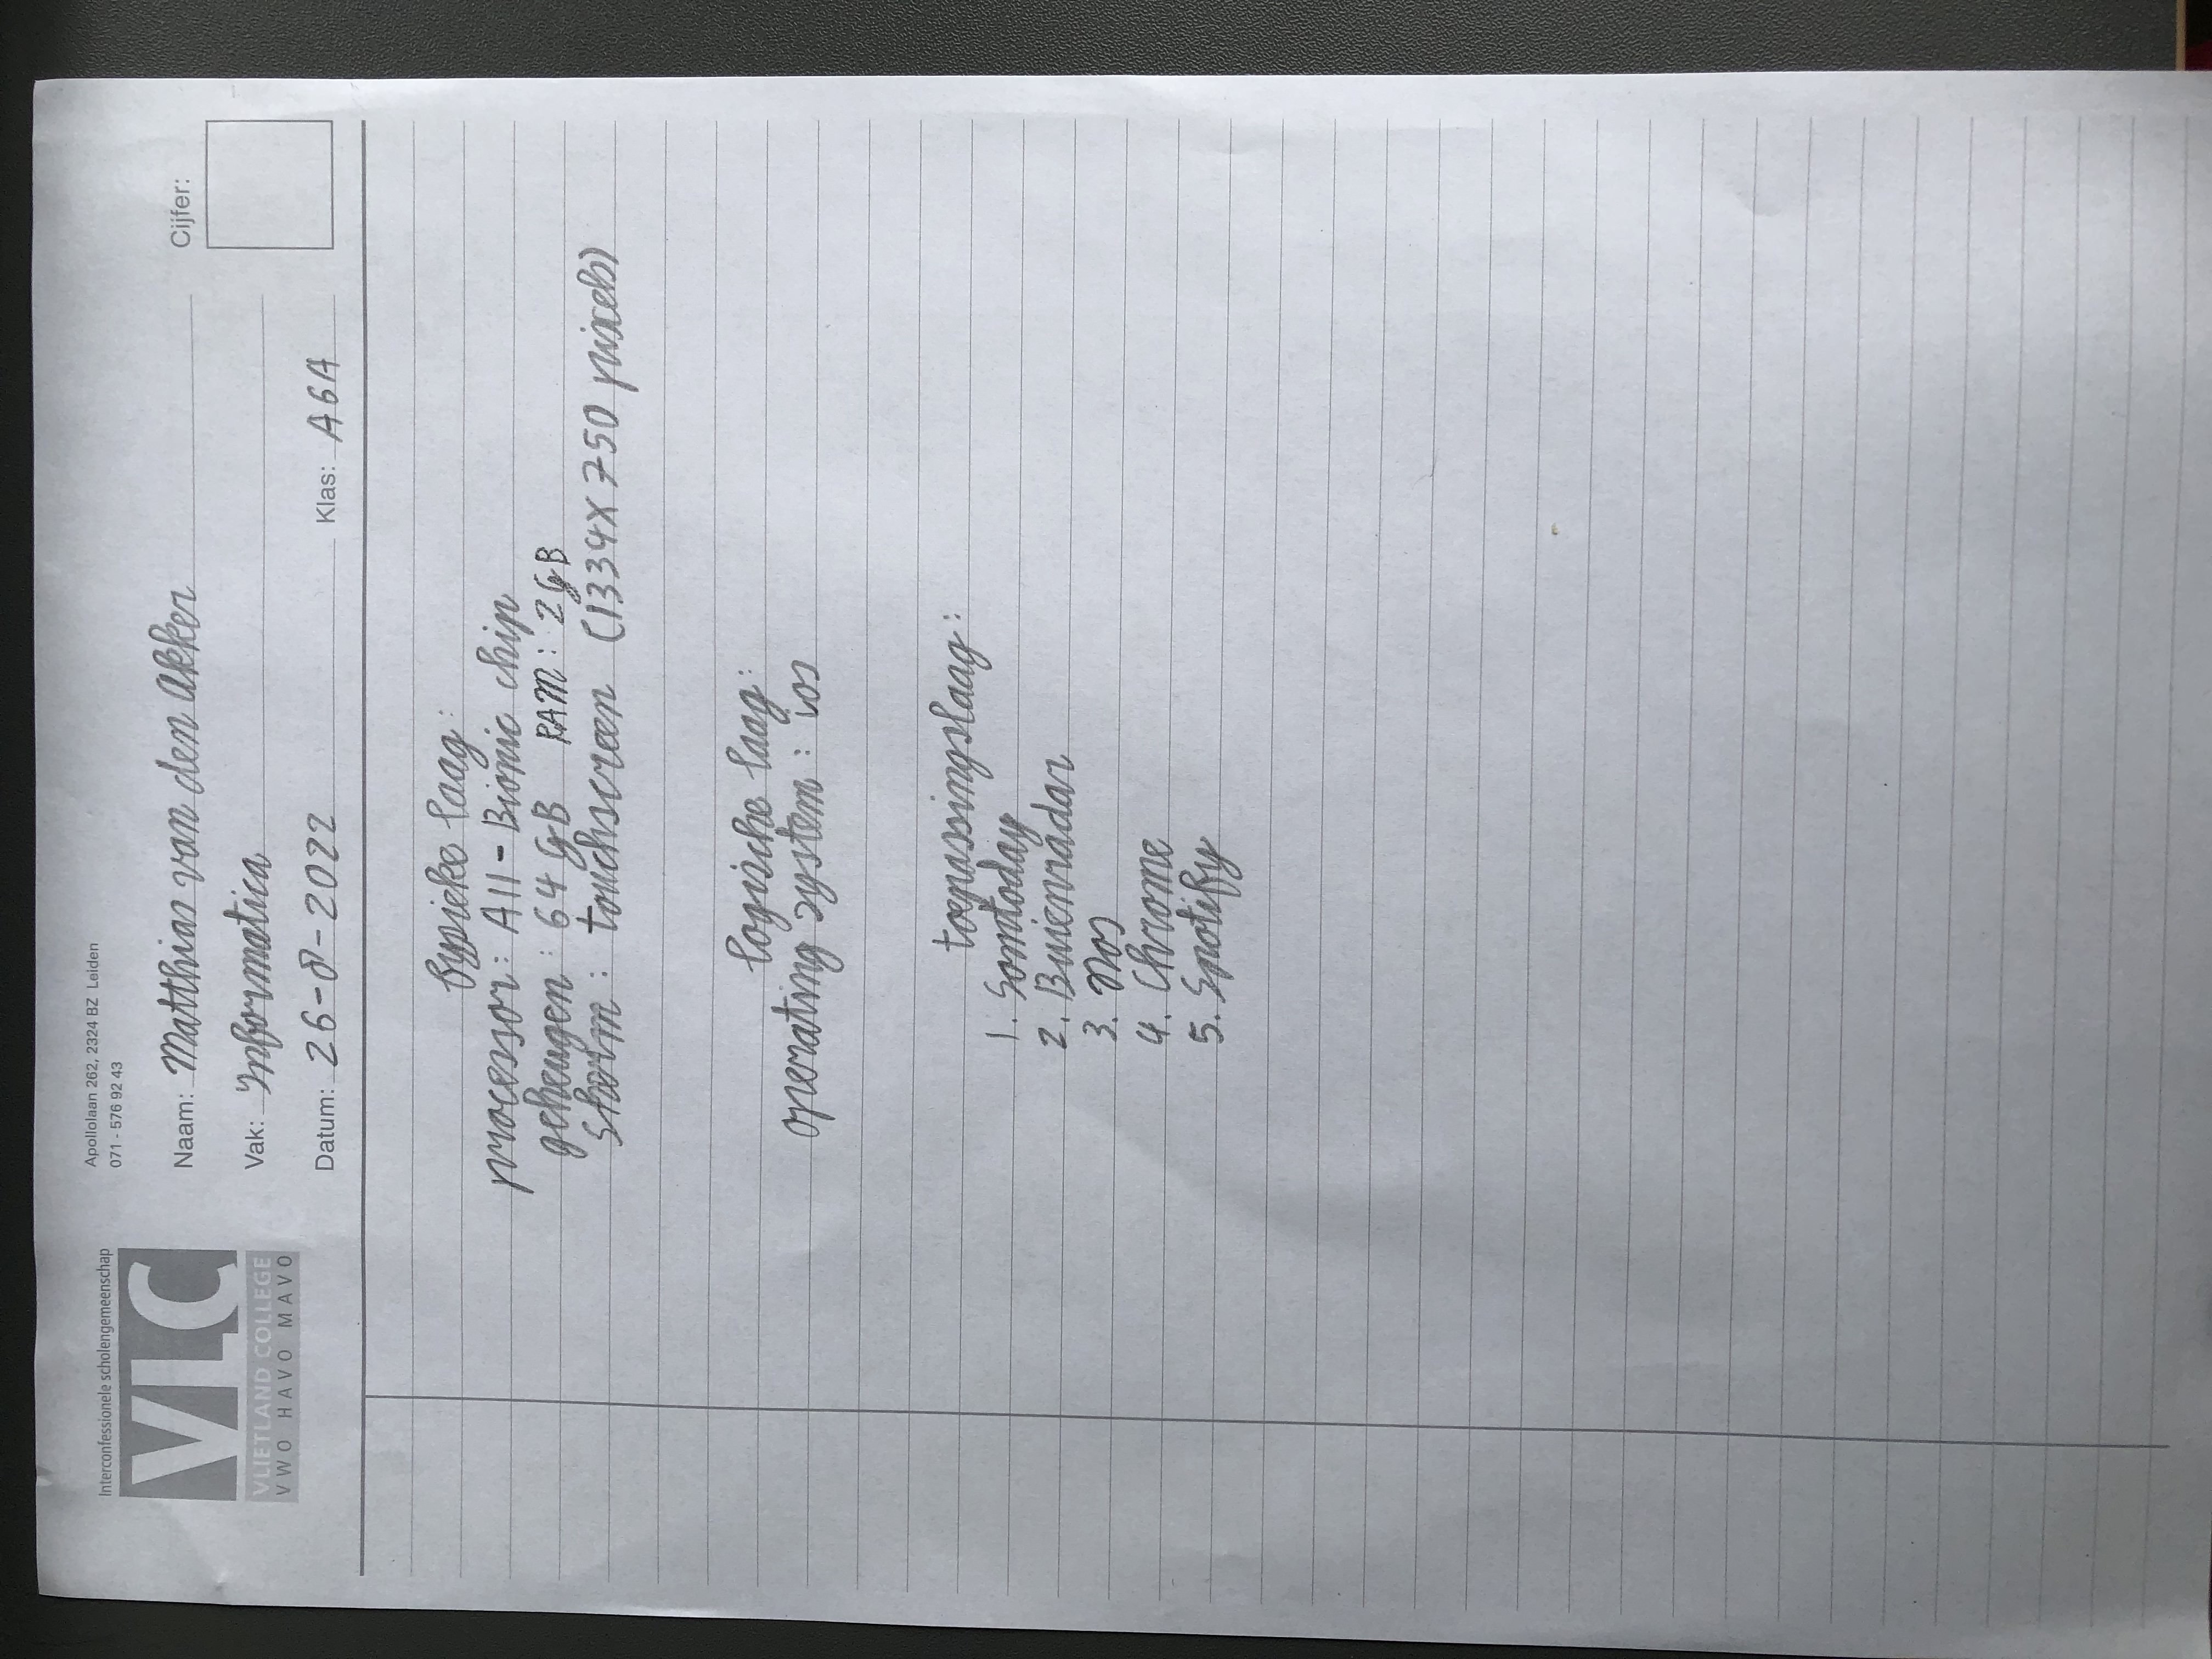 Interconfessionele scholengemeenschap
VLC
VLIETLAND COLLEGE
VWO HAVO MAVO
Apollolaan 262, 2324 BZ Leiden
071 - 576 92 43
Naam: Matthias van den Akker
Cijfer:
Vak: Informatica
Datum: 26-8-2022 Klas: A6A
fysieke laag:
processor: A11-Bionic chip
geheugen: 64 GB RAM: 2GB
scherm: touchscreen (1334X750 pixels)
logische laag:
operating system: ios
toepassingslaag:
1. Somtoday
2. Buienradar
3. Nos
4. Chrome
5. Spotify